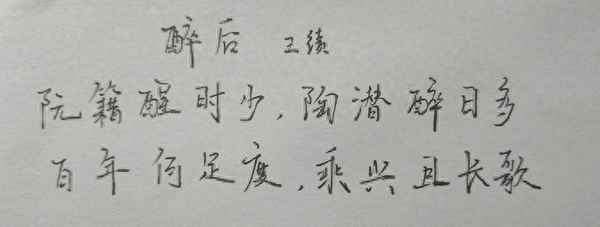 醉后 王绩
阮籍醒时少,陶潜醉日多
百年何足度,乘兴且长歌